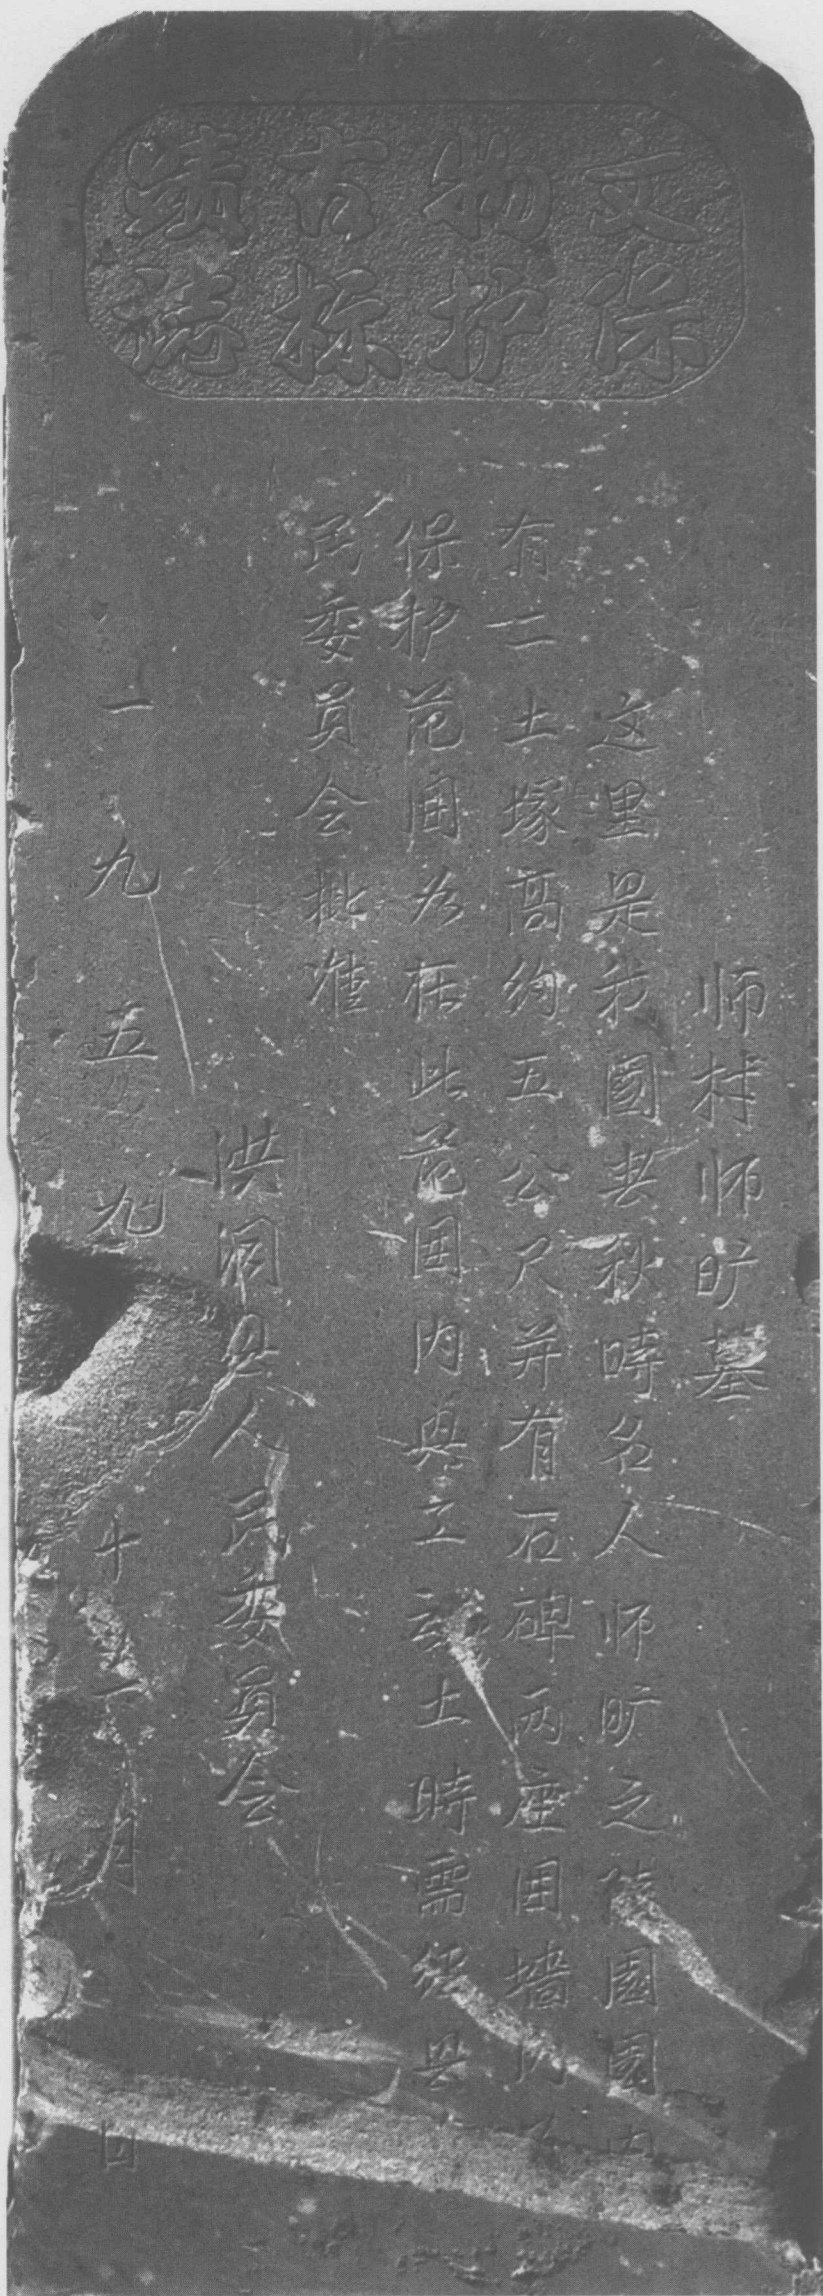 文物古蹟
保护标誌
师村师旷墓
这里是我國春秋時名人师旷之陵園園内
有二土塚高约五公尺并有石碑两座围墙内为
保护范围在此范围内兴工动土時需经县
民委员会批准
洪洞县人民委员会
一九五九 十二月 十日